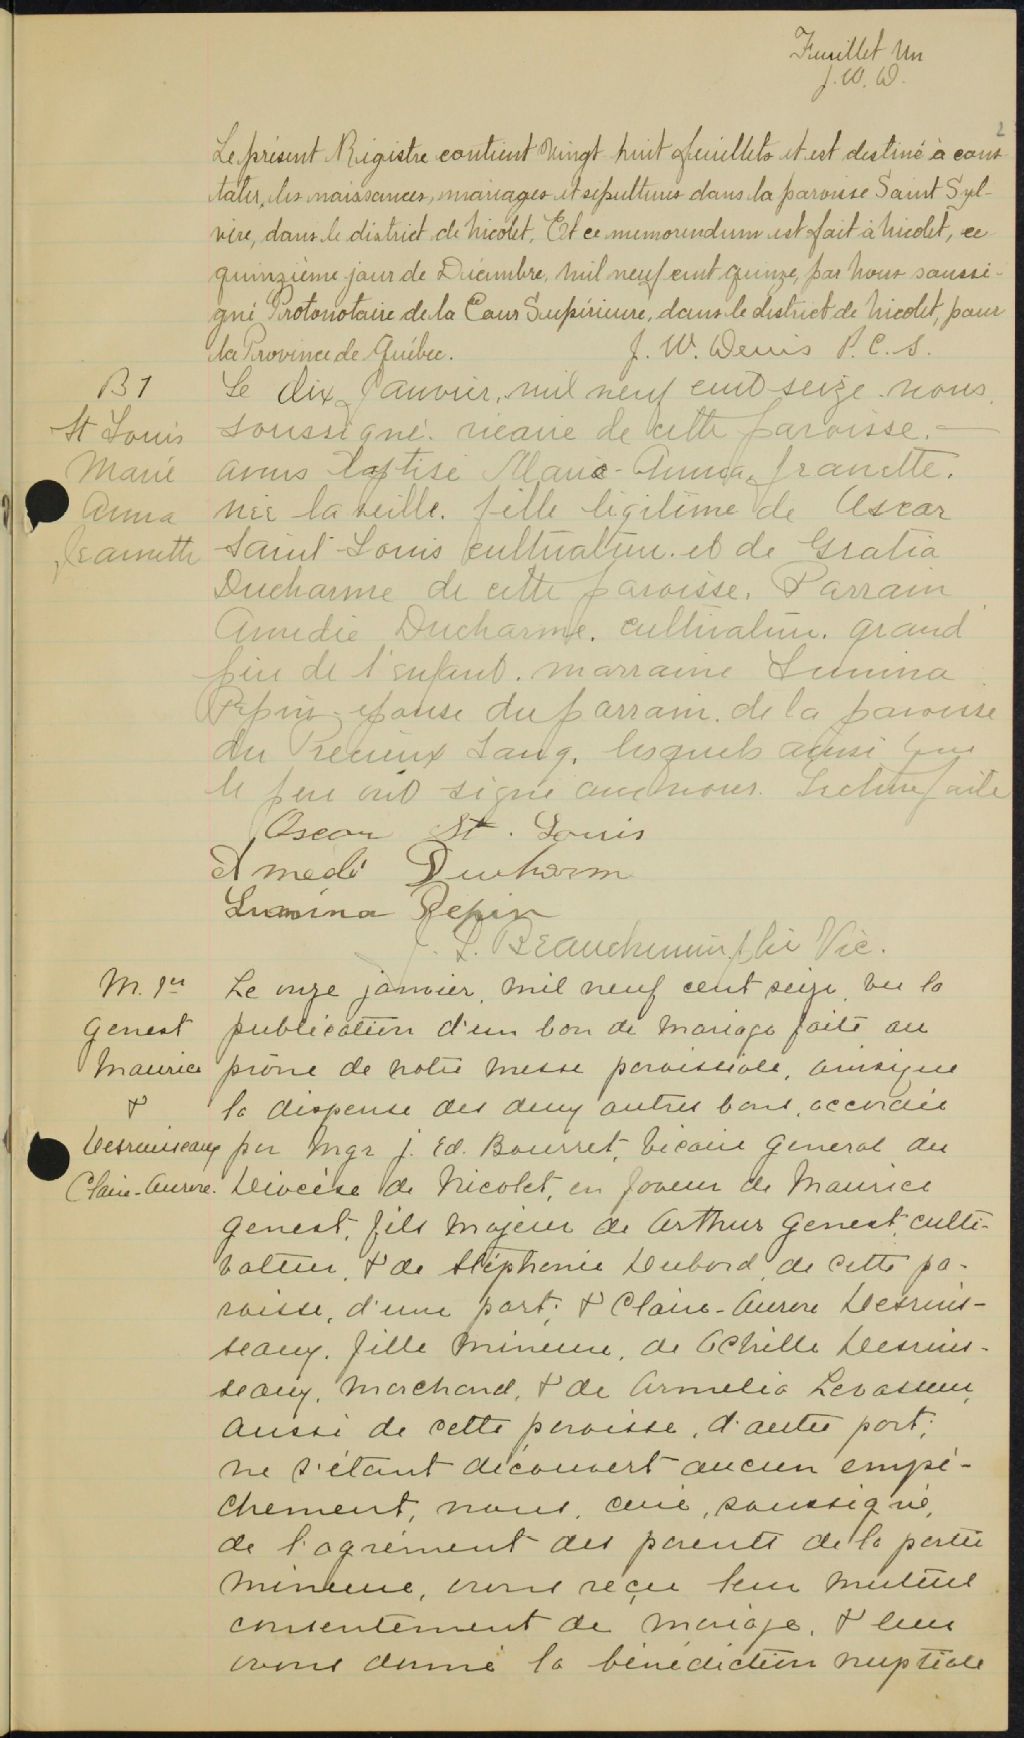 Feuillet Un
J. W. D.
2
Le présent Régistre contient Vingt huit feuillets et est destiné à cons
tater, les naissances, mariages et sépultures dans la paroisse Saint Syl-
vère, dans le district de Nicolet. Et ce memorendum est fait à Nicolet, ce
quinzième jour de Décembre, mil neuf cent quinze, par Nous soussi-
gné Protonotaire de la Cour Supérieure, dans le district de Nicolet, pour
la Province de Québec. J. W. Denis P. C. S.
B 1
St Louis
Marie
Anna
Jeannette
Le dix Janvier, mil neuf cent seize nous,
soussigné. vicaire de cette paroisse. —
avons baptisé Marie-Anna, Jeanette.
née la veille. fille légitime de Oscar
Saint-Louis cultivateur. et de Gratia
Ducharme de cette paroisse. Parrain
Amédie Ducharme. cultivateur. grand
père de l'enfant. marraine Lumina
Pepin epouse du parrain. de la paroisse
du Precieux Sang. lesquels ainsi que
le pere ont signé avec nous. Lecture faite
Oscar St. Louis
Amedé Ducharm
Lumina Pepin
J. L. Beauchemin, ptre Vic.
M. 1er
Genest
Maurice
&
Desruisseaux
Claire-Aurore.
Le onze janvier, mil neuf cent seize, vu la
publication d'un ban de mariage faite au
prône de notre messe paroissiale, ainsique
la dispense des deux autres bans, accordée
par Mgr J. Ed. Bourret, Vicaire General du
Diocèse de Nicolet, en faveur de Maurice
Genest, fils majeur de Arthur Genest, culti-
vateur, & de Stéphanie Dubord, de cette pa-
roisse, d'une part; & Claire-Aurore Desruis-
seaux, fille mineure, de Achille Desruis-
seaux, marchand, & de Armelia Levasseur,
aussi de cette paroisse, d'autre part;
ne s'étant découvert aucun empê-
chement, nous, curé, soussigné,
de l'agrément des parents de la partie
mineure, avons reçu leur mutuel
consentement de mariage, & leur
avons donné la bénédiction nuptiale